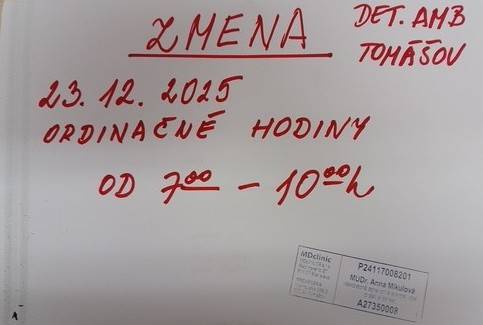 ZMENA
DET. AMB
TOMÁŠOV
23. 12. 2025
ORDINAČNÉ HODINY
OD 7⁰⁰ – 10⁰⁰h
MDclinic
P24117008201
MUDr. Anna Mikulová
A27350008
A